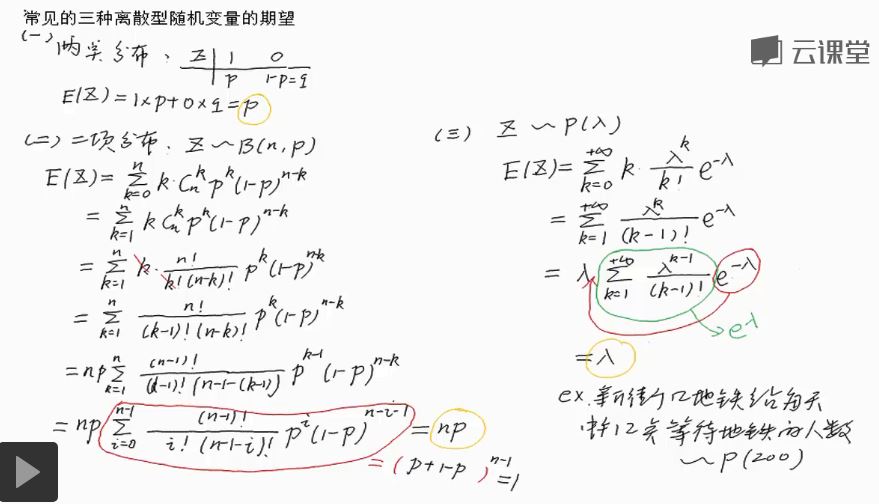 常见的三种离散型随机变量的期望
云课堂
(一) 两点分布. X | 1 0
p 1-p=q
E(X)=1×p+0×q=p
(二) 二项分布. X ~ B(n,p)
E(X)=∑_{k=0}^{n} k·C_n^k p^k (1-p)^{n-k}
=∑_{k=1}^{n} k C_n^k p^k (1-p)^{n-k}
=∑_{k=1}^{n} k·\frac{n!}{k!(n-k)!} p^k (1-p)^{n-k}
=∑_{k=1}^{n} \frac{n!}{(k-1)!(n-k)!} p^k (1-p)^{n-k}
=np∑_{k=1}^{n} \frac{(n-1)!}{(k-1)!(n-1-(k-1))} p^{k-1} (1-p)^{n-k}
=np ∑_{i=0}^{n-1} \frac{(n-1)!}{i!(n-1-i)!} p^i (1-p)^{n-i-1} = np
=(p+1-p)^{n-1}=1
(三) X ~ P(λ)
E(X)=∑_{k=0}^{+∞} k·\frac{λ^k}{k!} e^{-λ}
=∑_{k=1}^{+∞} \frac{λ^k}{(k-1)!} e^{-λ}
=λ ∑_{k=1}^{+∞} \frac{λ^{k-1}}{(k-1)!} e^{-λ}
=λ
ex. 新街口地铁站每天
中12点等待地铁的人数
~ P(200)